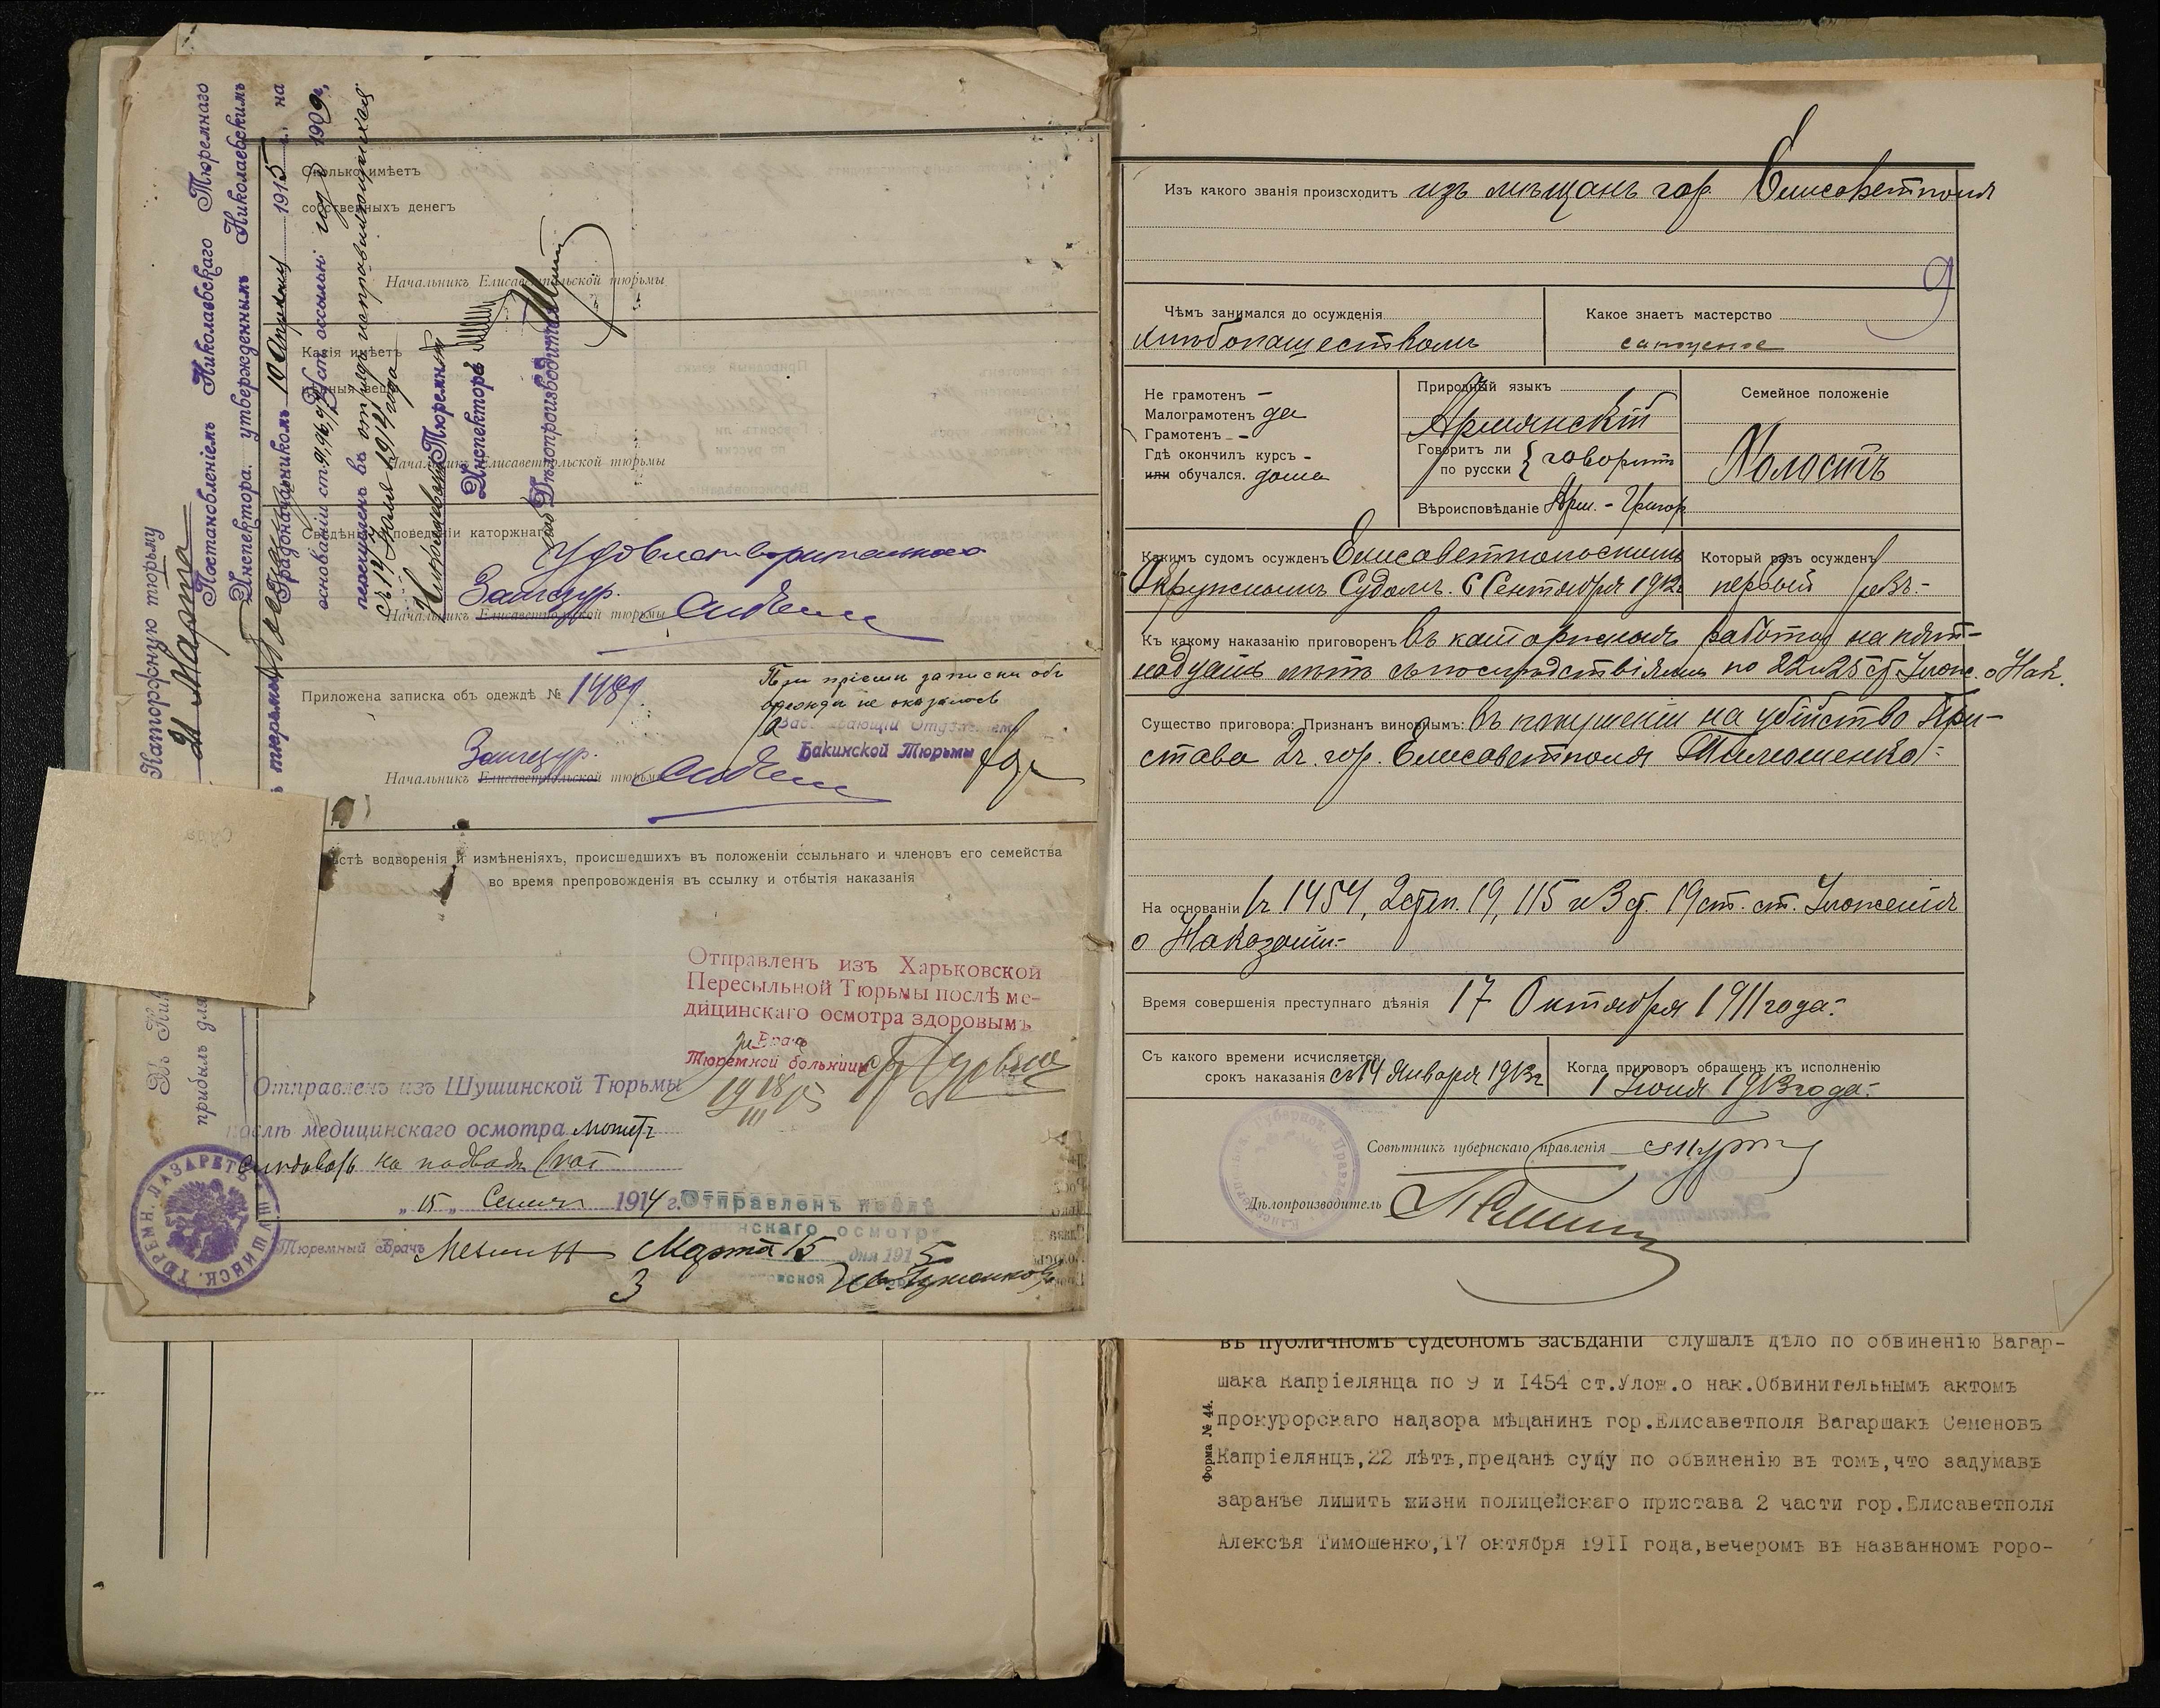 Сколько имѣетъ
собственныхъ денегъ
Начальникъ Елисаветпольской тюрьмы
Какія имѣетъ
цѣнныя вещи
Начальникъ Елисаветпольской тюрьмы
Свѣдѣнія о поведеніи каторжнаго
Удовлетворительнаго
Зангезур.
Начальникъ Елисаветпольской тюрьмы
Приложена записка объ одеждѣ № 1489
При пріемѣ записки объ
одеждѣ не оказалось
Завѣдывающій Отдѣленіем
Бакинской Тюрьмы
Зангезур.
Начальникъ Елисаветпольской тюрьмы
мѣстѣ водворенія и измѣненіяхъ, происшедшихъ въ положеніи ссыльнаго и членовъ его семейства
во время препровожденія въ ссылку и отбытія наказанія
Отправленъ изъ Харьковской
Пересыльной Тюрьмы послѣ ме-
дицинскаго осмотра здоровымъ
Врачъ
Тюремной больницы
Отправленъ изъ Шушинской Тюрьмы
послѣ медицинскаго осмотра можетъ
слѣдовать на подводѣ
„15„ Сентяб 1914 г.
Отправленъ послѣ
медицинскаго осмотра
Тюремный Врачъ
Марта 15 дня 1915
3
ТЮРЕМН. ЛАЗАРЕТЪ ШУШИНСК.
Каторжную тюрьму
21 Марта
прибылъ для
Постановленіемъ Николаевскаго Тюремнаго
Инспектора, утвержденнымъ Николаевскимъ
Градоначальникомъ 10 Апрѣля 1915 г., на
основаніи ст.
Уст. о ссыльн. изд. 1909 г.,
перечисленъ въ отрядъ исправляющихся
съ 14 Іюля 1914 года
Николаевскій Тюремный
Инспекторъ
Дѣлопроизводитель
Изъ какого званія происходитъ изъ мѣщанъ гор Елисаветполя
9
Чѣмъ занимался до осужденія
хлѣбопашествомъ
Какое знаетъ мастерство
сапожное
Не грамотенъ –
Малограмотенъ да
Грамотенъ –
Гдѣ окончилъ курсъ –
или обучался. дома
Природный языкъ
Армянскій
Говоритъ ли
по русски } говоритъ
Вѣроисповѣданіе Арм. - Григор
Семейное положеніе
Холостъ
Какимъ судомъ осужденъ Елисаветпольскимъ
Окружнымъ Судомъ. 6 Сентября 1912
Который разъ осужденъ
первый разъ.-
Къ какому наказанію приговоренъ въ каторжныя работы на пят-
надцать лѣтъ съ послѣдствіями по 22 и 25 ст Улож. о Нак.
Существо приговора: Признанъ виновнымъ: въ покушеніи на убійство При-
става 2 ч. гор. Елисаветполя Тимошенко.-
На основаніи 1 ч 1454, 2 степ. 19, 115 и 3 ст. 19 ст. ст. Уложенія
о Наказан.-
Время совершенія преступнаго дѣянія 17 Октября 1911 года.-
Съ какого времени исчисляется
срокъ наказанія съ 14 Января 1913 г
Когда приговоръ обращенъ къ исполненію
1 Іюня 1913 года.-
Совѣтникъ губернскаго правленія
Дѣлопроизводитель
въ публичномъ судебномъ засѣданіи слушалъ дѣло по обвиненію Вагар-
шака Капріелянца по 9 и 1454 ст.Улож.о нак.Обвинительнымъ актомъ
прокурорскаго надзора мѣщанинъ гор.Елисаветполя Вагаршакъ Семеновъ
Капріелянцъ,22 лѣтъ,преданъ суду по обвиненію въ томъ,что задумавъ
заранѣе лишить жизни полицейскаго пристава 2 части гор.Елисаветполя
Алексѣя Тимошенко,17 октября 1911 года,вечеромъ въ названномъ горо-
Форма № 44.